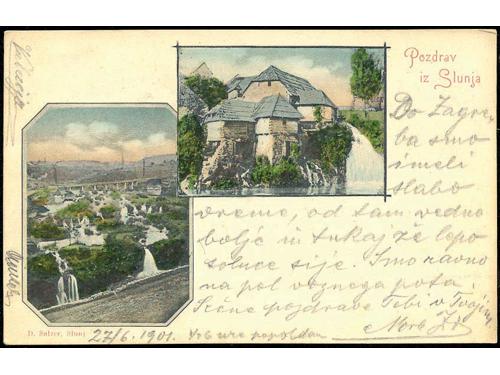 Pozdrav
iz Slunja
Do Zagre-
ba smo
imeli
slabo
vreme, od tam vedno
bolje in tukaj že lepo
solnce sije. Smo ravno
na pol voznega pota.
Srčne pozdrave Tebi in Tvojim
D. Salzer, Slunj
27/6. 1901.
ure popoldan